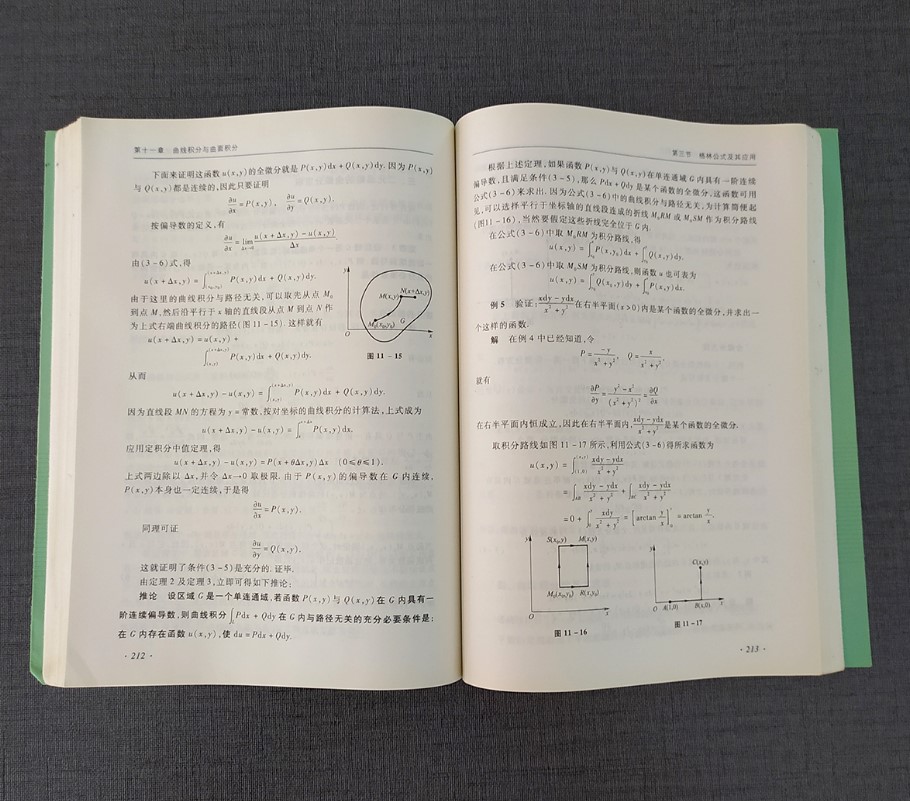 第十一章 曲线积分与曲面积分
下面来证明这函数 u(x,y) 的全微分就是 P(x,y)dx+Q(x,y)dy. 因为 P(x,y)
与 Q(x,y) 都是连续的,因此只要证明
∂u/∂x = P(x,y), ∂u/∂y = Q(x,y).
按偏导数的定义,有
∂u/∂x = lim_{Δx→0} (u(x+Δx,y)-u(x,y))/Δx
由(3-6)式,得
u(x+Δx,y) = ∫_{(x₀,y₀)}^{(x+Δx,y)} P(x,y)dx+Q(x,y)dy.
由于这里的曲线积分与路径无关,可以取先从点 M₀
到点 M,然后沿平行于 x 轴的直线段从点 M 到点 N 作
为上式右端曲线积分的路径(图 11-15). 这样就有
u(x+Δx,y) = u(x,y) +
∫_{(x,y)}^{(x+Δx,y)} P(x,y)dx+Q(x,y)dy.
y
N(x+Δx,y)
M(x,y)
M₀(x₀,y₀)
G
O
x
图 11-15
从而
u(x+Δx,y)-u(x,y) = ∫_{(x,y)}^{(x+Δx,y)} P(x,y)dx+Q(x,y)dy.
因为直线段 MN 的方程为 y=常数,按对坐标的曲线积分的计算法,上式成为
u(x+Δx,y)-u(x,y) = ∫_x^{x+Δx} P(x,y)dx.
应用定积分中值定理,得
u(x+Δx,y)-u(x,y) = P(x+θΔx,y)Δx (0≤θ≤1).
上式两边除以 Δx,并令 Δx→0 取极限. 由于 P(x,y) 的偏导数在 G 内连续,
P(x,y) 本身也一定连续,于是得
∂u/∂x = P(x,y).
同理可证
∂u/∂y = Q(x,y).
这就证明了条件(3-5)是充分的. 证毕.
由定理 2 及定理 3,立即可得如下推论:
推论 设区域 G 是一个单连通域,若函数 P(x,y) 与 Q(x,y) 在 G 内具有一
阶连续偏导数,则曲线积分 ∫_L Pdx+Qdy 在 G 内与路径无关的充分必要条件是:
在 G 内存在函数 u(x,y),使 du=Pdx+Qdy.
· 212 ·
第三节 格林公式及其应用
根据上述定理,如果函数 P(x,y) 与 Q(x,y) 在单连通域 G 内具有一阶连续
偏导数,且满足条件(3-5),那么 Pdx+Qdy 是某个函数的全微分,这函数可用
公式(3-6)来求出. 因为公式(3-6)中的曲线积分与路径无关,为计算简便起
见,可以选择平行于坐标轴的直线段连成的折线 M₀RM 或 M₀SM 作为积分路线
(图 11-16),当然要假定这些折线完全位于 G 内.
在公式(3-6)中取 M₀RM 为积分路线,得
u(x,y) = ∫_{x₀}^x P(x,y₀)dx + ∫_{y₀}^y Q(x,y)dy.
在公式(3-6)中取 M₀SM 为积分路线,则函数 u 也可表为
u(x,y) = ∫_{y₀}^y Q(x₀,y)dy + ∫_{x₀}^x P(x,y)dx.
例 5 验证: (xdy-ydx)/(x²+y²) 在右半平面(x>0)内是某个函数的全微分,并求出一
个这样的函数.
解 在例 4 中已经知道,令
P = -y/(x²+y²), Q = x/(x²+y²),
就有
∂P/∂y = (y²-x²)/(x²+y²)² = ∂Q/∂x
在右半平面内恒成立,因此在右半平面内, (xdy-ydx)/(x²+y²) 是某个函数的全微分.
取积分路线如图 11-17 所示,利用公式(3-6)得所求函数为
u(x,y) = ∫_{(1,0)}^{(x,y)} (xdy-ydx)/(x²+y²)
= ∫_{AB} (xdy-ydx)/(x²+y²) + ∫_{BC} (xdy-ydx)/(x²+y²)
= 0 + ∫_0^y xdy/(x²+y²) = [arctan y/x]_0^y = arctan y/x.
y
S(x₀,y)
M(x,y)
M₀(x₀,y₀)
R(x,y₀)
O
x
图 11-16
y
C(x,y)
O
A(1,0)
B(x,0)
x
图 11-17
· 213 ·